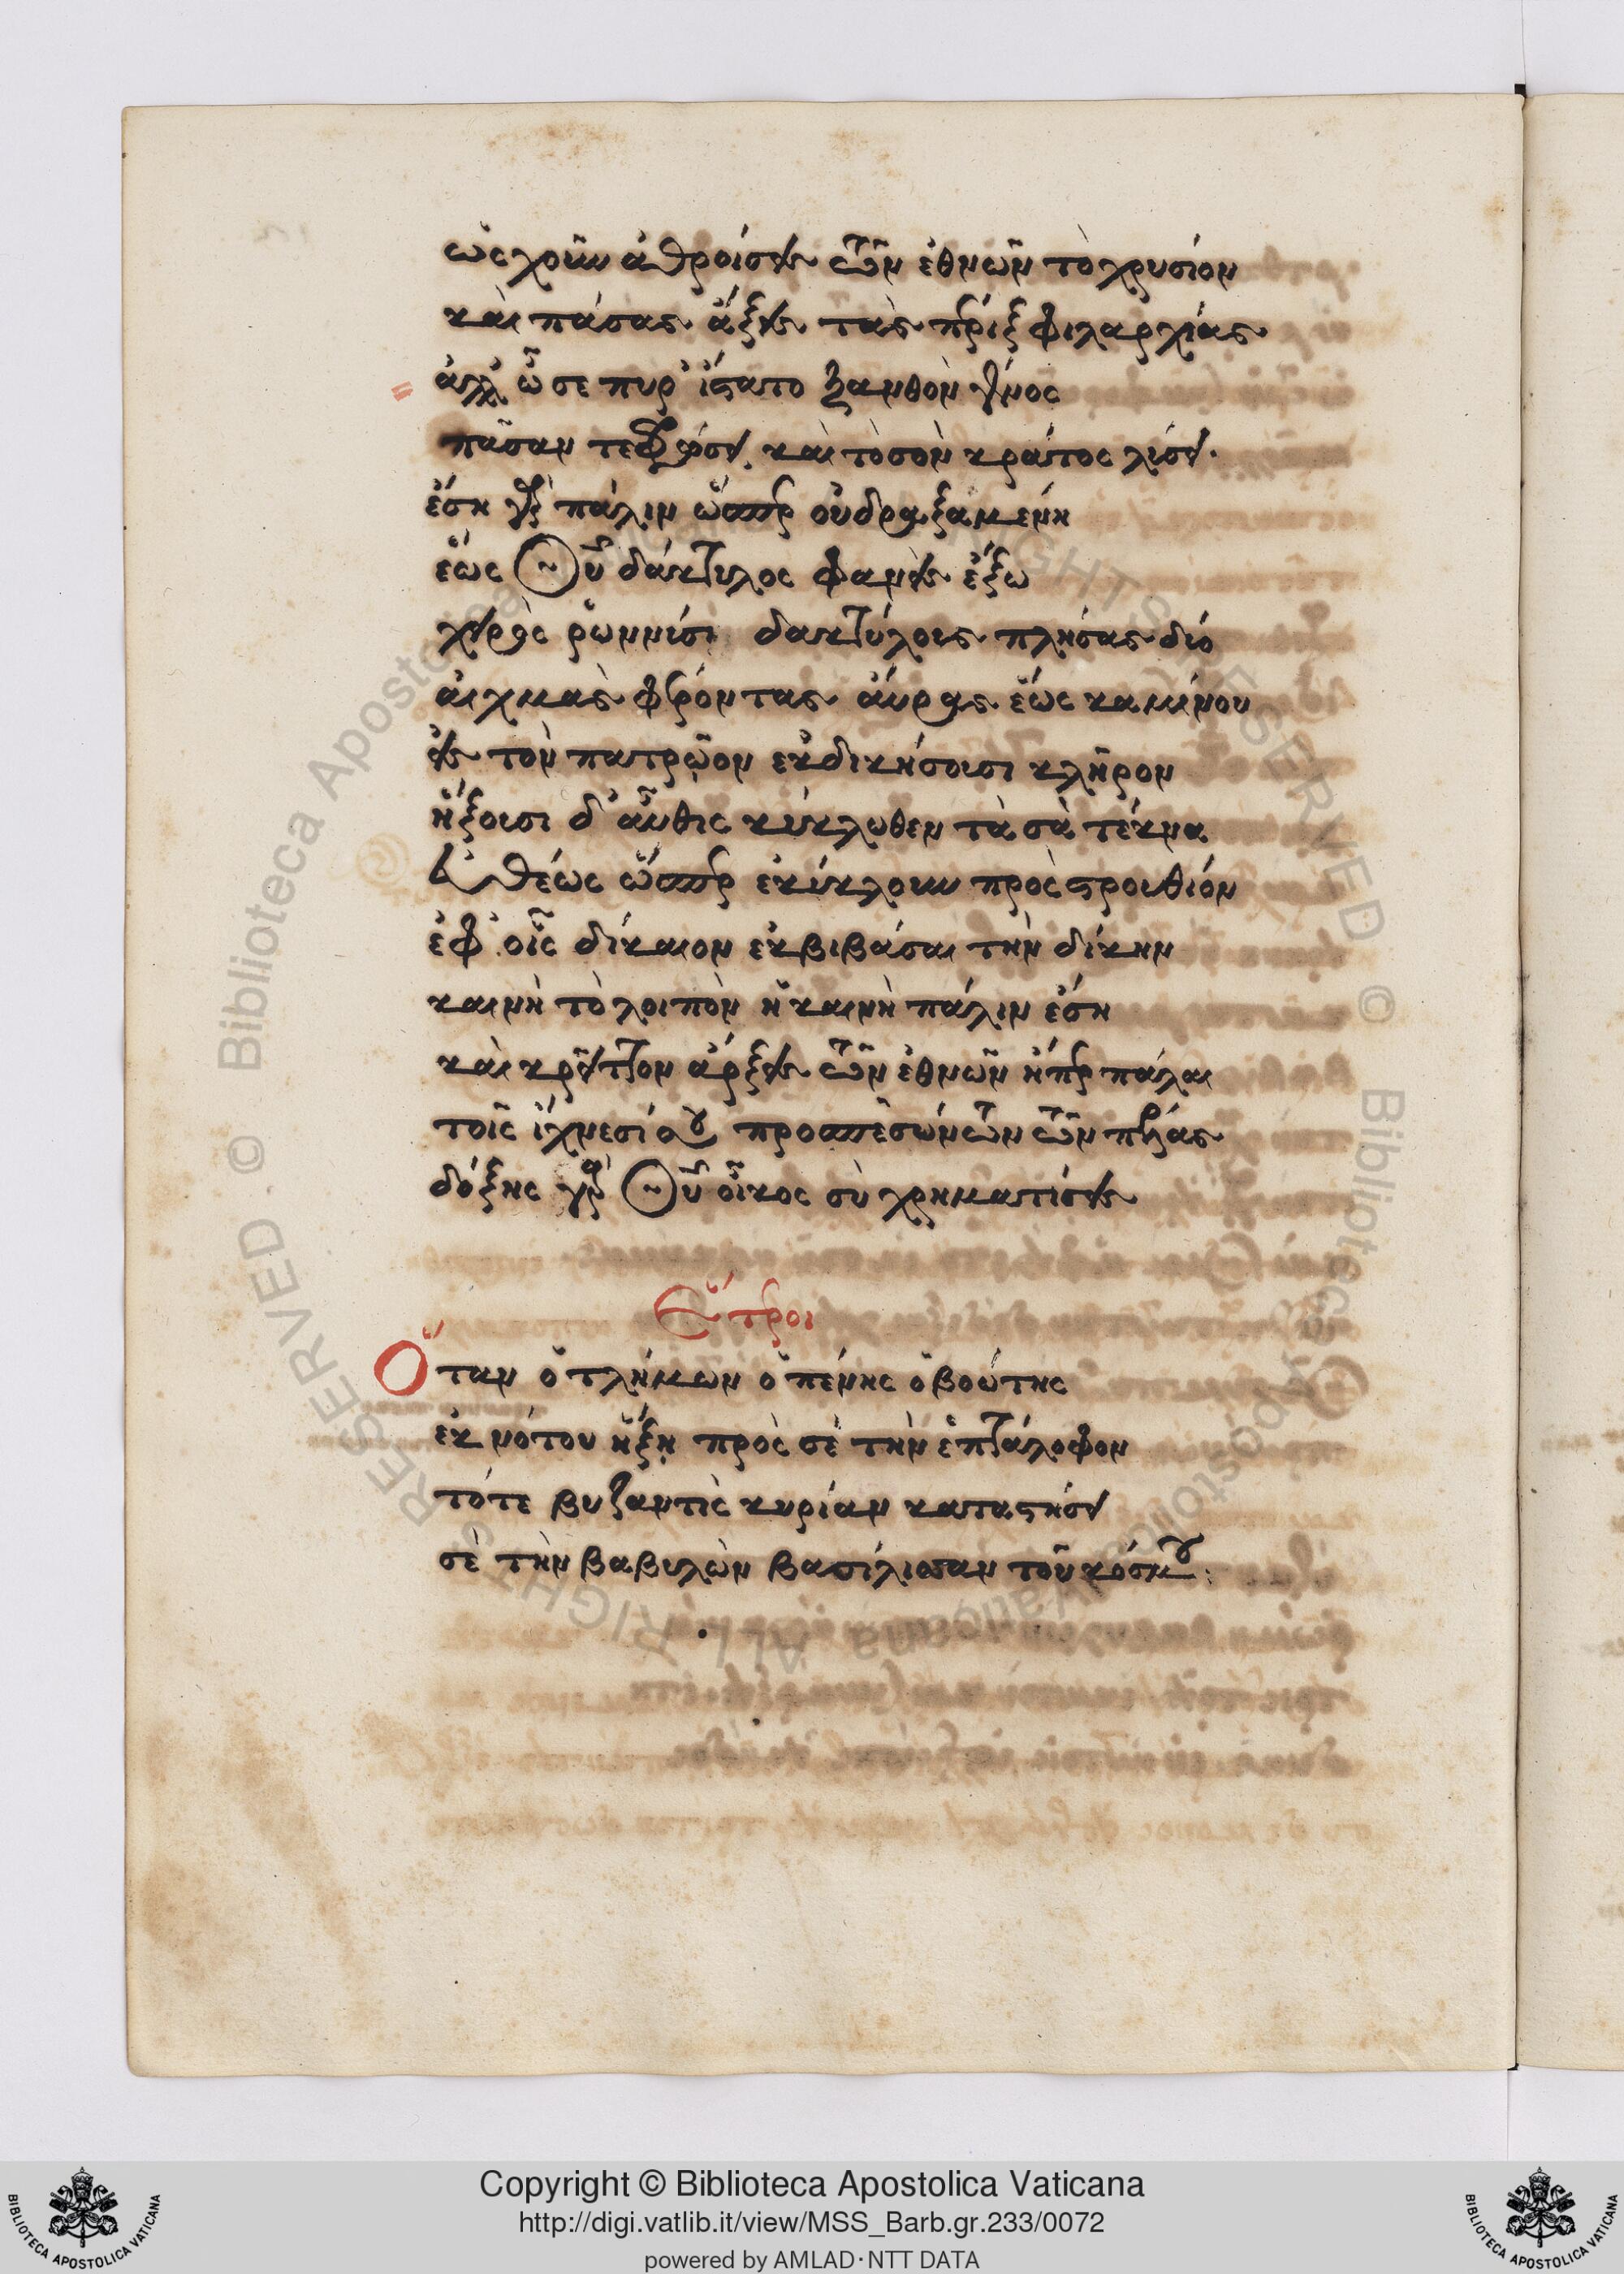 ὡς χοῦν ἀθροίσεις τῶν ἐθνῶν τὸ χρυσίον
καὶ πάσας ἄξεις τὰς πέριξ φιλαρχίας
ἀλλ' ὦ σε πυρ ἵστατο ξανθὸν γένος
πᾶσαν τεφρώσει καὶ τὸ σὸν κράτος λύσει.
ἔση γὰρ πάλιν ὥσπερ οὐ δραξαμένη
ἕως Θῦ δάκτυλος φανεὶς ἔξω
χεῖρας ῥωννύσι δακτύλοις πλήσας δύο
αἰχμὰς φέροντας αὔρας ἕως καμίνου
εἰς τὸν πατρῷον ἐκδικήσουσι κλῆρον
ἥξουσι δ' αὖθις κύκλωθεν τὰ σὰ τέκνα
εὐθέως ὥσπερ ἐκύκλουν πρὸς στρουθίον
ἐφ' οἷς δίκαιον ἐκβιβάσαι τὴν δίκην
καινὴ τὸ λοιπὸν ἡ καινὴ πάλιν ἔση
καὶ κρεῖττον ἄρξεις τῶν ἐθνῶν ἥπερ πάλαι
τοῖς ἴχνεσί σου προσπεσόντων τῶν πέρας
δόξης γὰρ Θῦ οἶκος σὺ χρηματίσεις
Ἕτεροι
Ὅταν ὁ τλήμων ὁ πένης ὁ βούτης
ἐκ νότου ἥξῃ πρὸς σὲ τὴν ἑπτάλοφον
τότε βυζαντὶς κυρίαν καταστήσει
σὲ τὴν βαβυλὼν βασίλισσαν τοῦ κόσμου
Copyright © Biblioteca Apostolica Vaticana
http://digi.vatlib.it/view/MSS_Barb.gr.233/0072
powered by AMLAD·NTT DATA